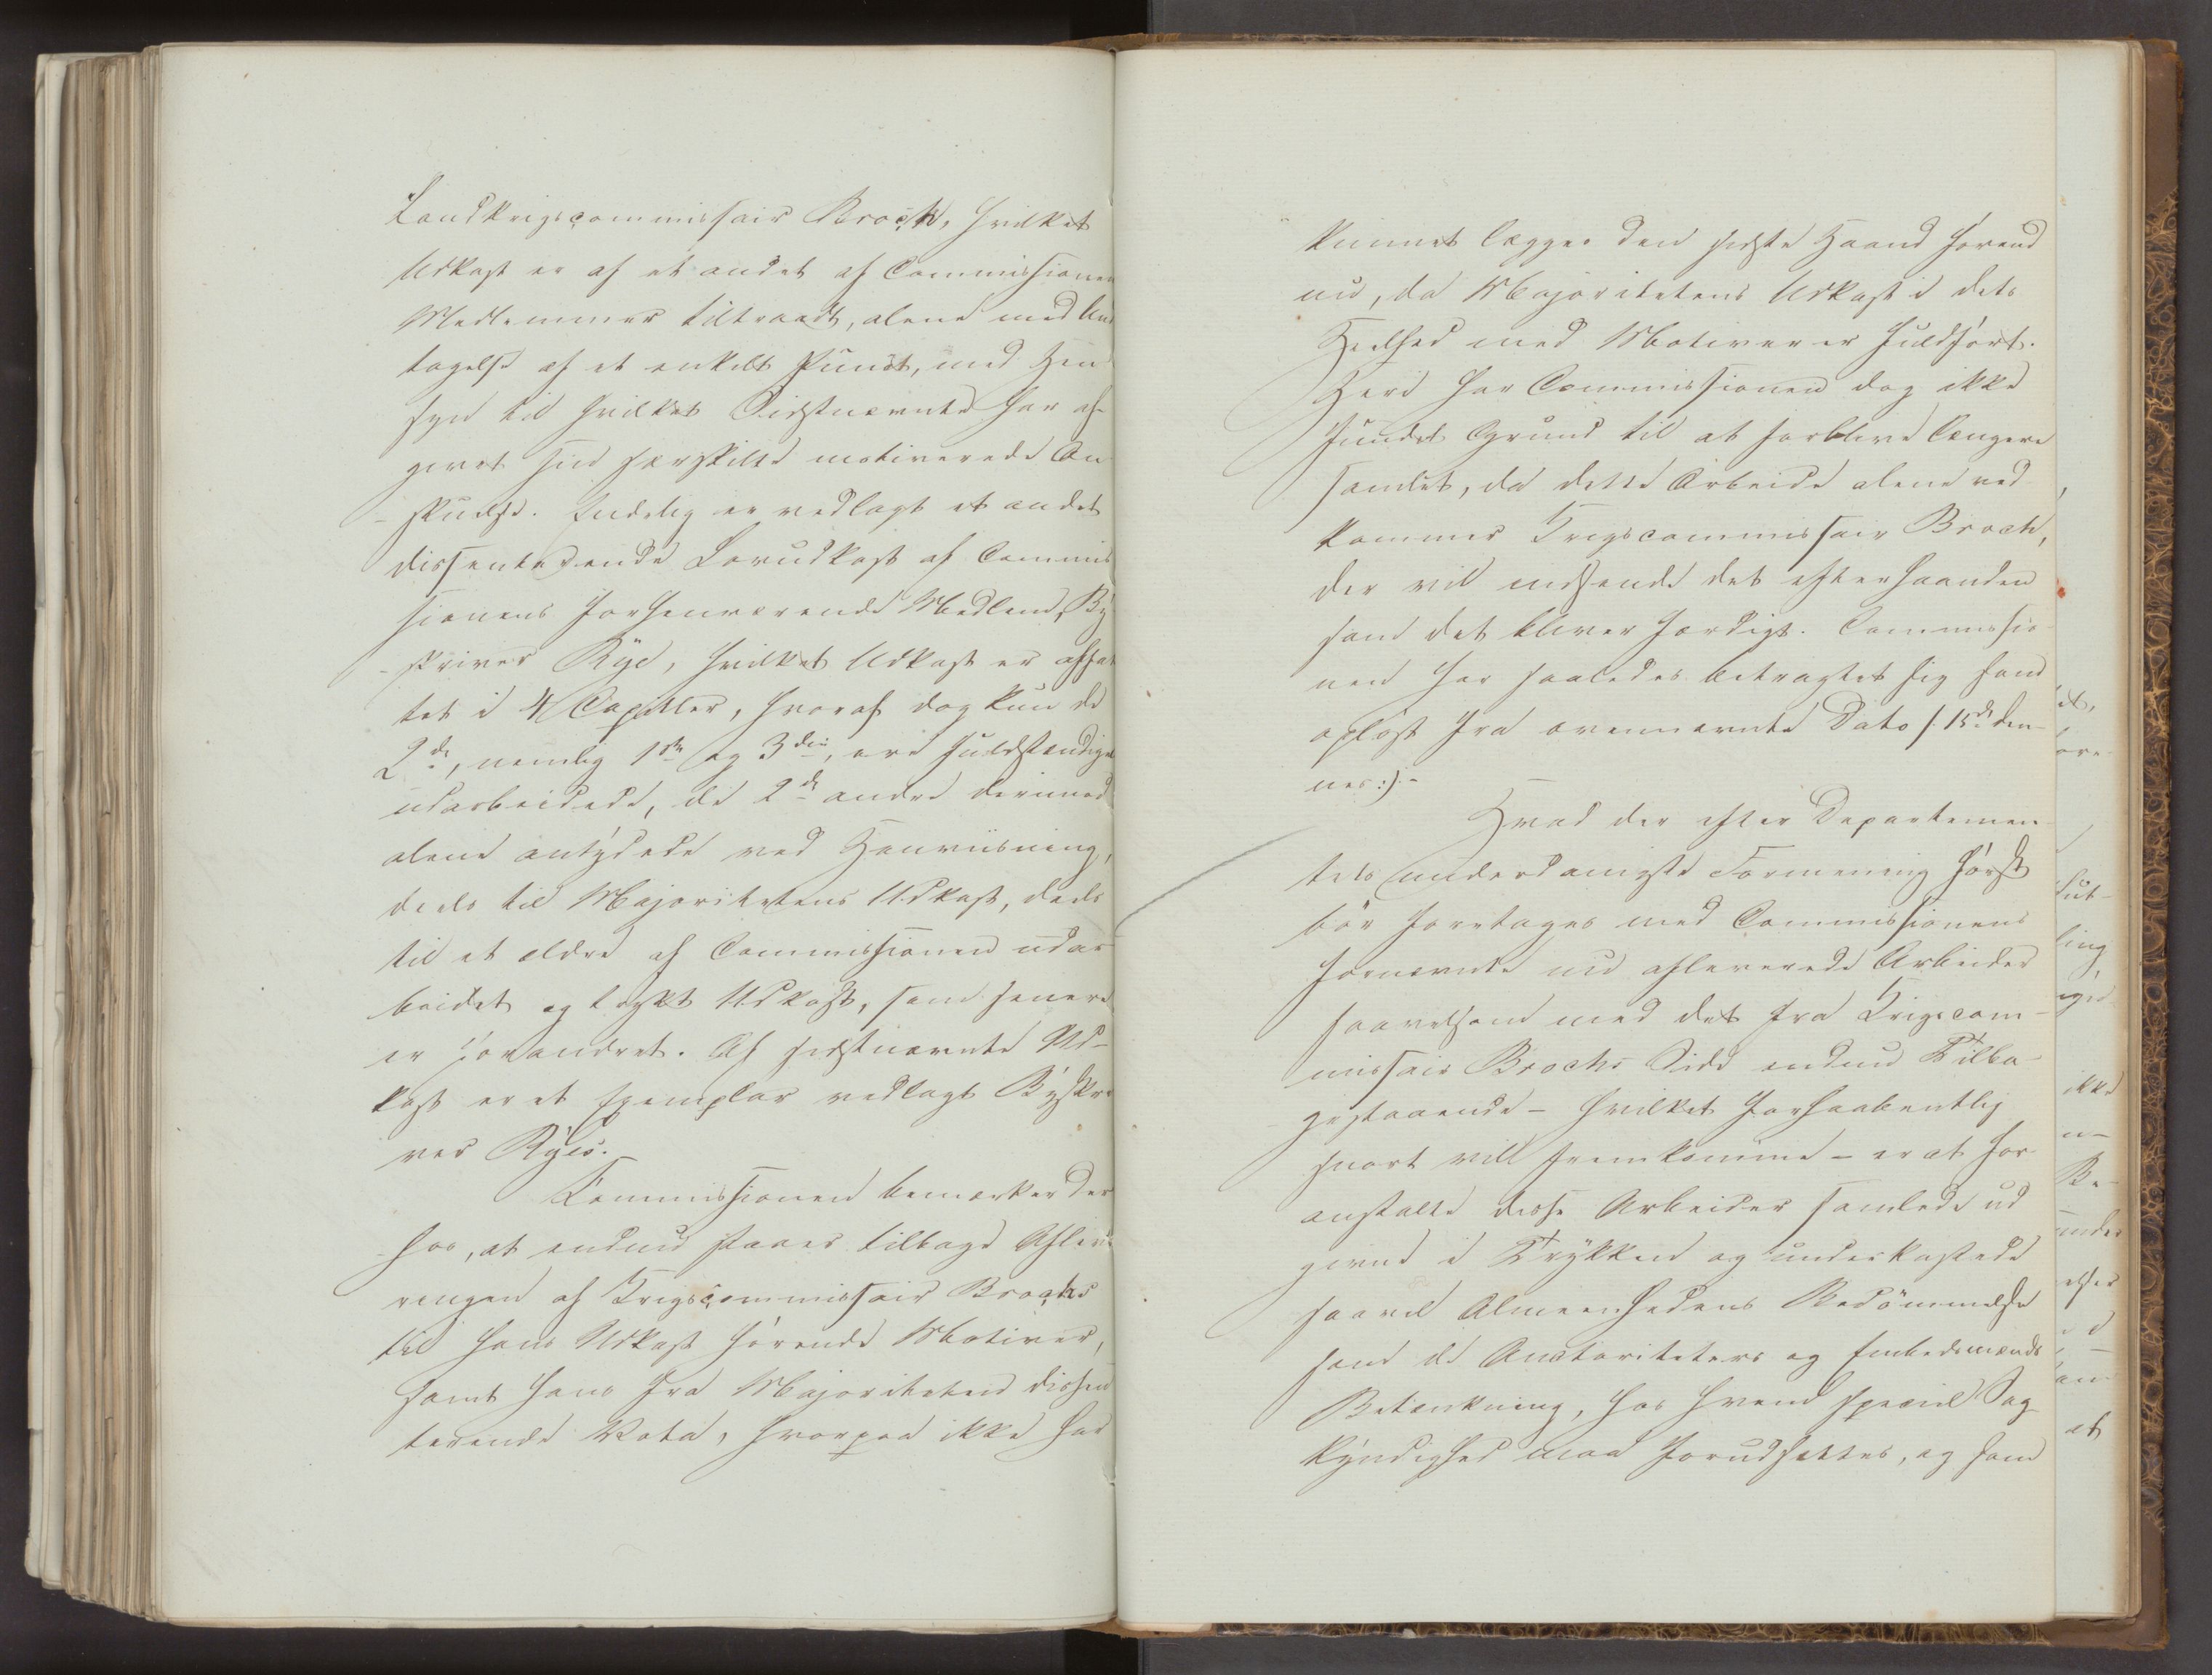 Landkrigscommissair Broch, hvilket
Udkast er af et andet af Commissionens
Medlemmer tiltraadt, alene med Und
tagelse af et enkelt Punct, med Hen
syn til hvilket Sidstnævnte har af-
givet sin særskilte motiverede An
- skuelse. Endelig er vedlagt et andet
dissenterende Lovudkast af Commis
sionens forhenværende Medlem, By
- skriver Rye, hvilket Udkast er affat
tet i 4 Capitler, hvoraf dog kun de
2de, nemlig 1ste og 3die, ere fuldstændigen
udarbeidede, de 2de andre derimod
alene antydede ved Henviisning,
deels til Majoritetens Udkast, deels
til et ældre af Commissionen udar
beidet og trykt Udkast, som senere
er forandret. Af sidstnævnte Ud-
kast er et Exemplar vedlagt Byskri
ver Ryes.
Commissionen bemærker der
hos, at endnu staaer tilbage Afleve
ringen af Krigscommissair Brochs
til hans Udkast hørende Motiver,
samt hans fra Majoriteten dissen
terende Vota, hvorpaa ikke har
kunnet lægges den sidste Haand førend
nu, da Majoritetens Udkast i dets
Heelhed med Motiver er fuldført.
Heri har Commissionen dog ikke
fundet Grund til at forblive længere
samlet, da dette Arbeide alene ved
kommer Krigscommissair Broch,
der vil indsende det efterhaanden
som det bliver færdigt. Commissio
nen har saaledes betragtet sig som
opløst fra ovennævnte Dato /: 15de den-
nes :/. -
Hvad der efter Departemen
tets underdanigste Formening først
bør foretages med Commissionens
fornævnte nu afleverede Arbeider
saavelsom med det fra Krigscom-
missair Brochs Side endnu Tilba-
gestaaende - hvilket forhaabentlig
snart vil fremkomme - er at for
anstalte disse Arbeider samlede ud
givne i Trykken og underkastede
saavel Almeenhedens Bedømmelse
som de Auctoriteters og Embedsmænds
Betænkning, hos hvem speciel Sag
kyndighed maa forudsættes, og som